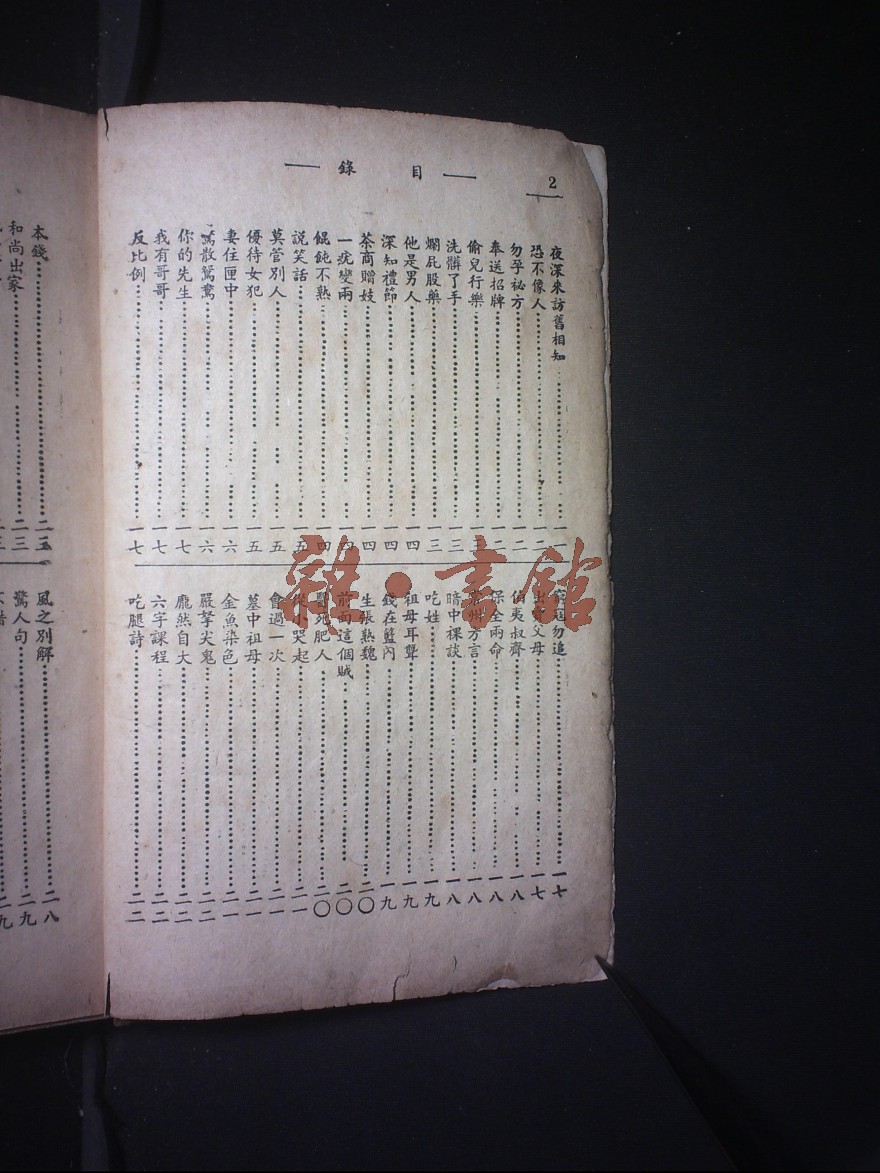 2
目錄
夜深來訪舊相知……一一
恐不像人……一二
勿孕祕方……一二
奉送招牌……一二
偷兒行樂……一三
洗髒了手……一三
爛屁股藥……一三
他是男人……一四
深知禮節……一四
茶商贈妓……一四
一疣變兩……一四
餛飩不熟……一四
說笑話……一五
莫管別人……一五
優待女犯……一五
妻住匣中……一六
驚散鴛鴦……一六
你的先生……一七
我有哥哥……一七
反比例……一七
窮寇勿追……一七
出賣父母……一七
伯夷叔齊……一八
保全兩命……一八
常州方言……一八
暗中裸談……一八
吃姓……一九
祖母耳聾……一九
錢在籃內……一九
生張熟魏……二〇
前面這個賊……二〇
醫死肥人……二〇
從小哭起……二一
會過一次……二一
墓中祖母……二一
金魚染色……二一
嚴拏尖鬼……二二
龐然自大……二二
六字課程……二二
吃腿詩……二二
本錢……二三
和尚出家……二三
風之別解……二八
驚人句……二九
雜·書館